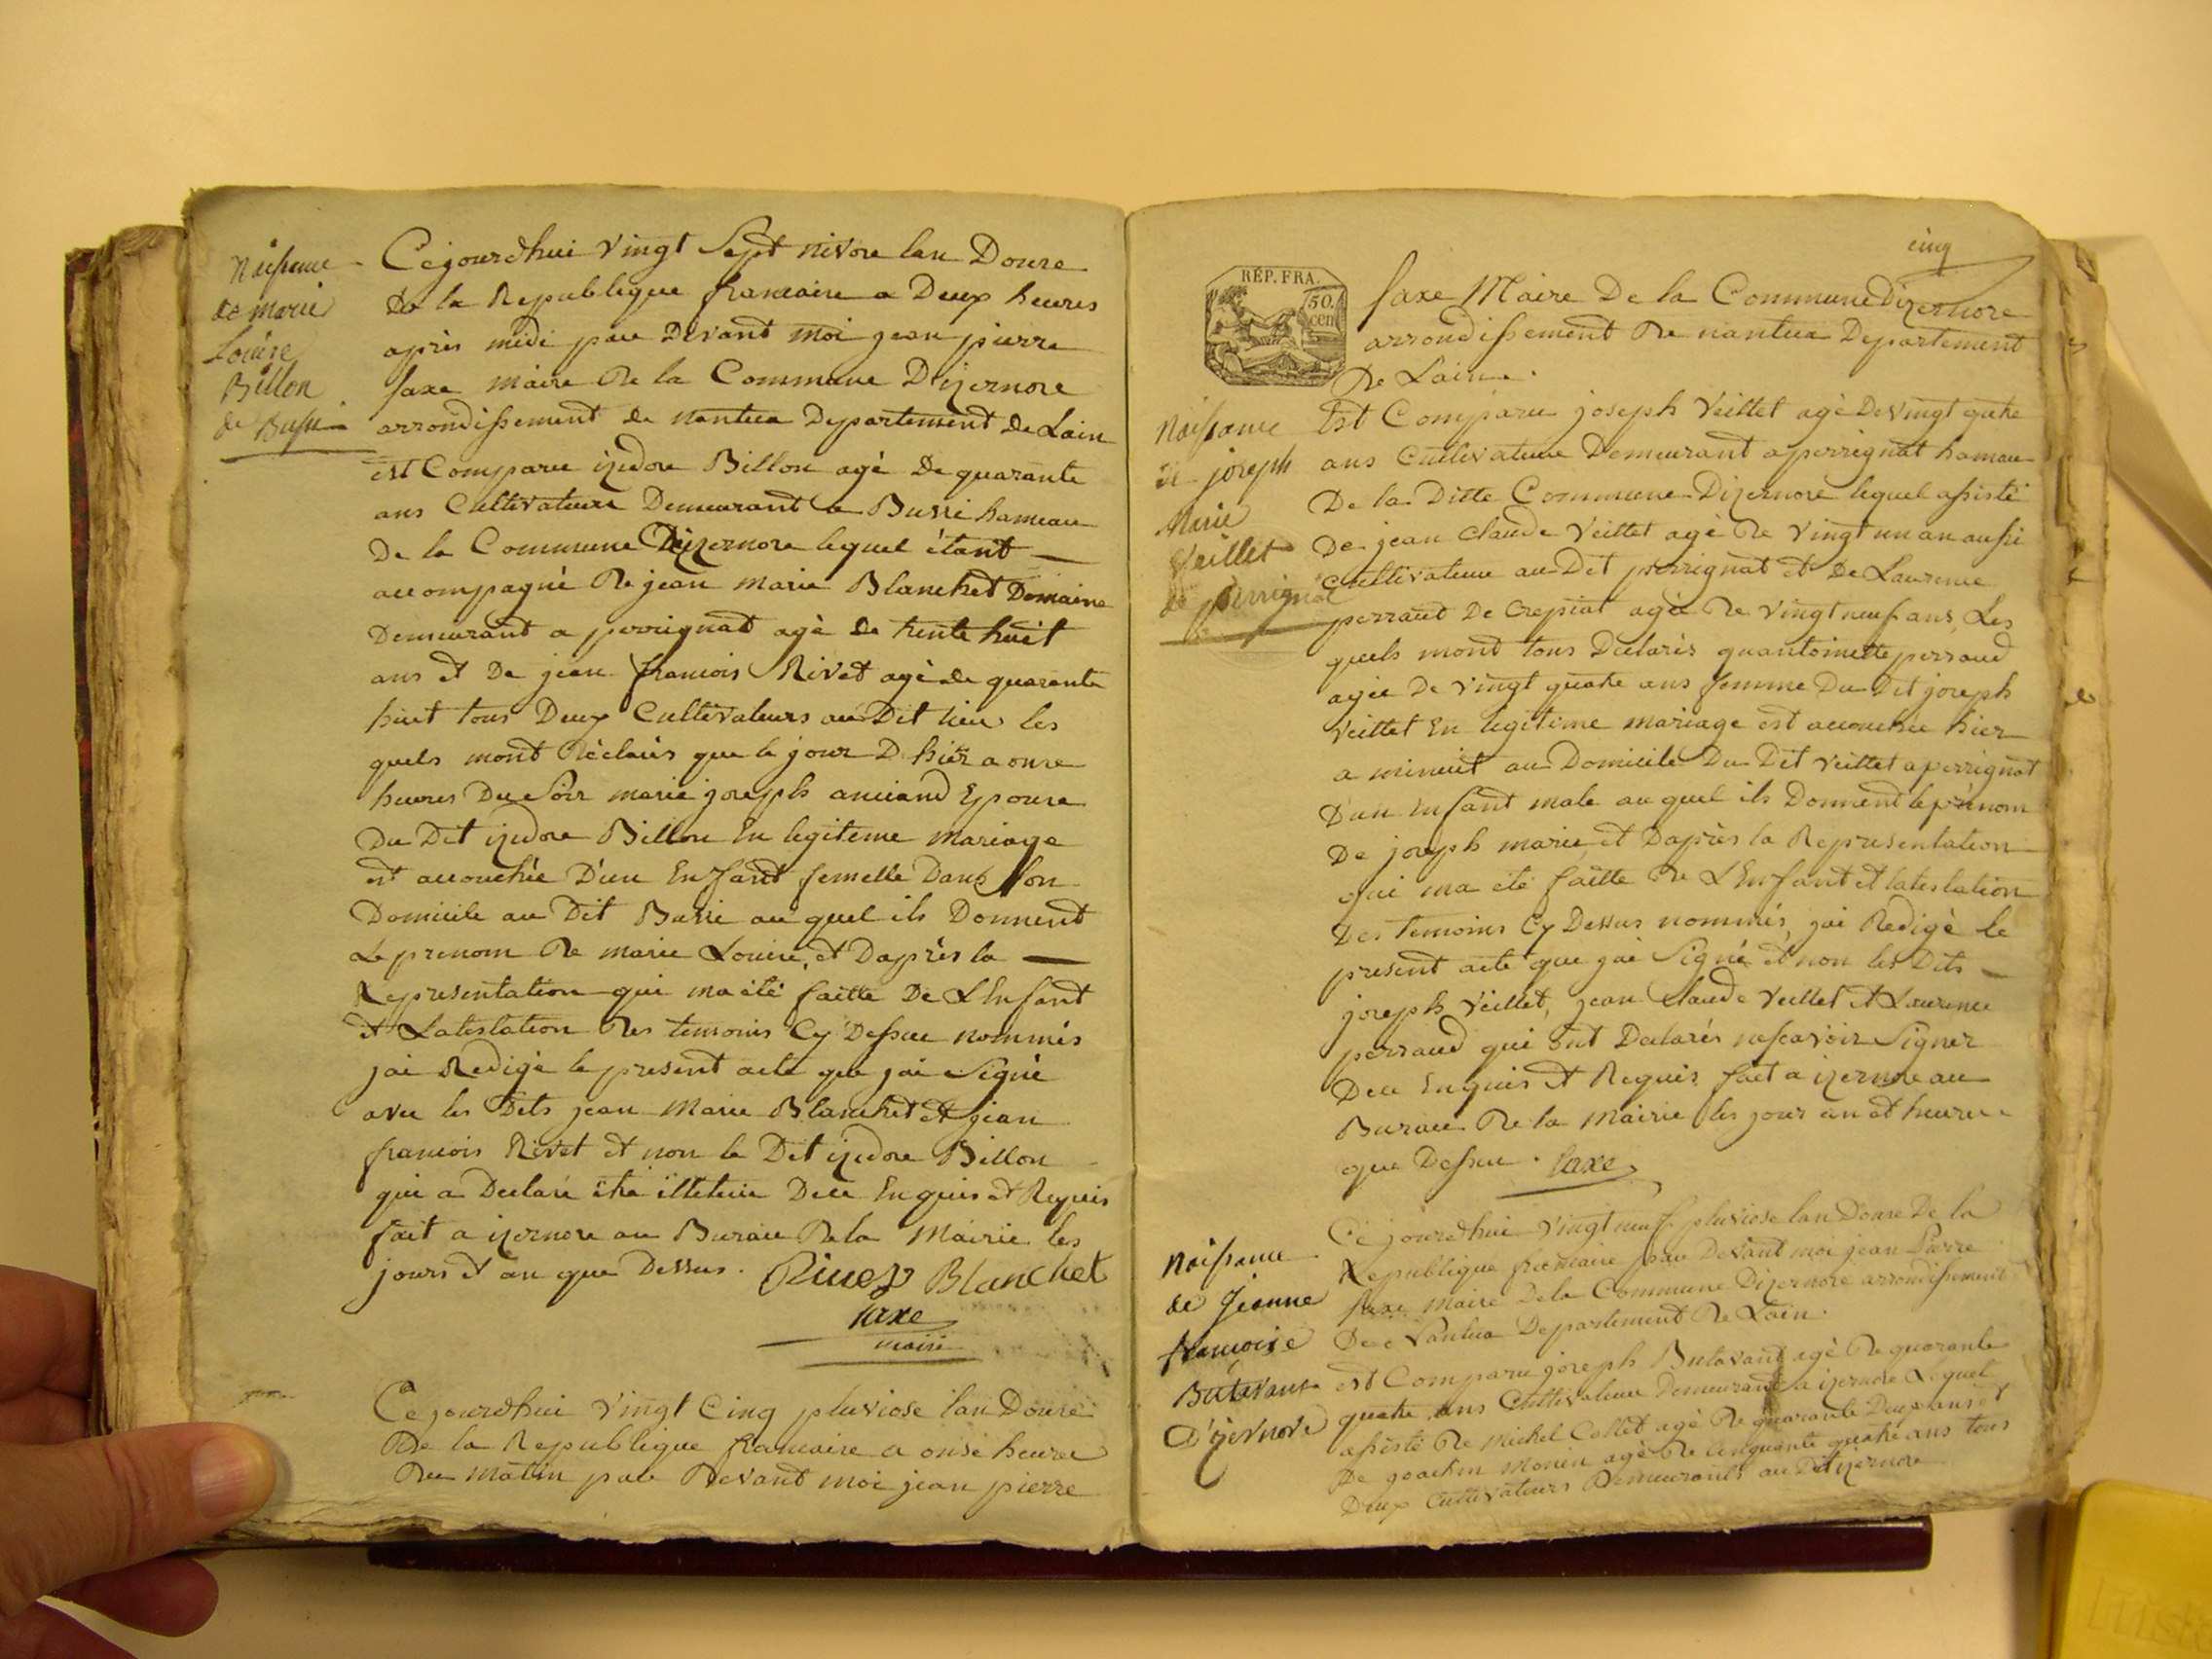 Naissance
de marie
Louise
Billon
de Bussi
Cejourdhui vingt Sept nivose lan Douse
de la Republique francaise a Deux heures
après midi par Devant moi jean pierre
faxe maire De la Commune Dizernore
arrondissement de nantua Departement de Lain
est Comparu izidore Billon agè De quarante
ans Cultivateur Demeurant a Bussi hameau
De la Commune Dizernore lequel ètant
accompagné De jean marie Blanchet Domaine
Demeurant a perrignat agè de trente huit
ans et De jean francois Rivet agè de quarante
huit tous Deux Cultivateurs au Dit lieu les
quels mont Déclarés que le jour D hier a onse
heures Du Soir marie joseph anciand Epouse
Du Dit izidore Billon En legitime mariage
est accouchée D'un Enfant femelle Dans son
Domicile au Dit Bussi au quel ils Donnent
Le prenom De marie Louise, et Daprès la
Representation qui ma été faitte De L'Enfant
et Latestation Des temoins Cy Dessu nommés
jai Redigé le present acte que jai Signé
avec les Dits jean Marie Blanchet et jean
francois Rivet et non le Dit izidore Billon
qui a Declaré être illeteré Deu Enquis et Requis
fait a izernore au Bureau De la Mairie les
jours et an que Dessus. Rivet Blanchet
faxe
maire
Cejourdhui vingt Cinq pluviose l'an Douse
De la Republique francaise a onse heure
Du Matin par Devant moi jean pierre
cinq
RÉP. FRA.
50.
cen
faxe Maire De la Commune Dizernore
arrondissement De nantua Departement
De Lain.
Naissance
de joseph
Marie
Veillet
de perrignat
Est Comparu joseph Veillet agè De vingt quatre
ans Cultivateur Demeurant a perrignat hameau
De la Ditte Commune Dizernore lequel assisté
De jean claude Veillet agé De vingt un an aussi
Cultivateur au Dit perrignat et De Laurence
perraud De Crepiat agée De vingt neuf ans, Les
quels mont tous Declarés quantoinette perraud
agée De vingt quatre ans femme Du Dit joseph
Veillet En legitime mariage est accouchée hier
a minuit au Domicile Du Dit Veillet a perrignat
D'un Enfant male au quel ils Donnent le prénom
De joseph marie, et Daprès la Representation
qui ma été faitte De L'Enfant et latestation
Des temoins Cy Dessus nommés, jai Redigé le
present acte que jai Signé et non les Dits
joseph Veillet, jean Claude Veillet et Laurence
perraud qui ont Declarés ne scavoir Signer
Deu Enquis et Requis fait a izernore au
Bureau De la Mairie les jour an et heure
que Dessu. faxe
Naissance
de Jeanne
francoise
Butavant
D'izernore
Ce jourdhui vingt neuf pluviose lan Douse De la
Republique francaise par Devant moi jean Pierre
faxe maire De la Commune Dizernore arrondissement
De Nantua Departement De Lain.
est Comparu joseph Butavant agé De quarante
quatre ans Cultivateur Demeurant a izernore Lequel
assisté De Michel Collet agé De quarante Deux ans et
De joachin Monin agé De Cinquante quatre ans tous
Deux Cultivateurs Demeurants au Dit izernore